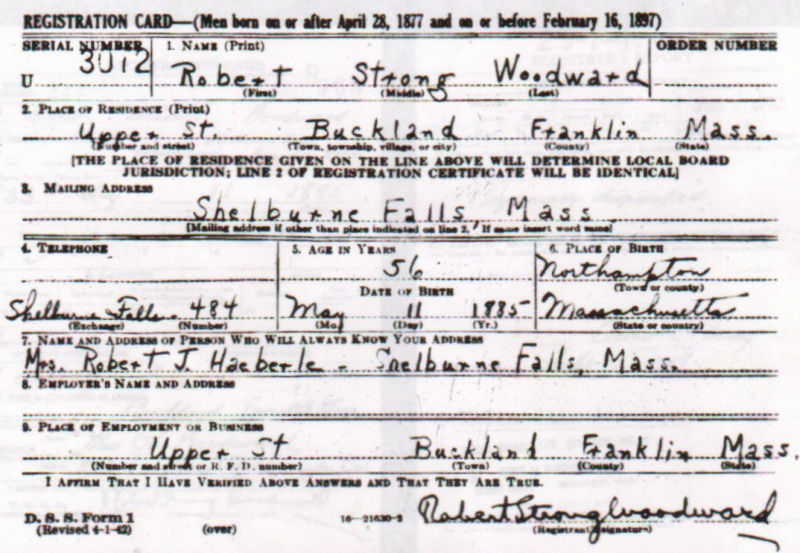 REGISTRATION CARD—(Men born on or after April 28, 1877 and on or before February 16, 1897)
SERIAL NUMBER 1. NAME (Print) ORDER NUMBER
U Robert Strong Woodward
(First) (Middle) (Last)
2. PLACE OF RESIDENCE (Print)
Upper St. Buckland Franklin Mass.
(Number and street) (Town, township, village, or city) (County) (State)
[THE PLACE OF RESIDENCE GIVEN ON THE LINE ABOVE WILL DETERMINE LOCAL BOARD
JURISDICTION; LINE 2 OF REGISTRATION CERTIFICATE WILL BE IDENTICAL]
3. MAILING ADDRESS
Shelburne Falls, Mass.
[Mailing address if other than place indicated on line 2. If same insert word same]
4. TELEPHONE 5. AGE IN YEARS 6. PLACE OF BIRTH
56 Northampton
(Town or county)
DATE OF BIRTH
Shelburne Falls - 484 May 11 1885 Massachusetts
(Exchange) (Number) (Mo.) (Day) (Yr.) (State or country)
7. NAME AND ADDRESS OF PERSON WHO WILL ALWAYS KNOW YOUR ADDRESS
Mrs. Robert J. Haeberle - Shelburne Falls, Mass.
8. EMPLOYER'S NAME AND ADDRESS
9. PLACE OF EMPLOYMENT OR BUSINESS
Upper St Buckland Franklin Mass.
(Number and street or R. F. D. number) (Town) (County) (State)
I AFFIRM THAT I HAVE VERIFIED ABOVE ANSWERS AND THAT THEY ARE TRUE.
Robert Strong Woodward
D. S. S. Form 1
(Revised 4-1-42) (over) 16—21630-2 (Registrant's signature)